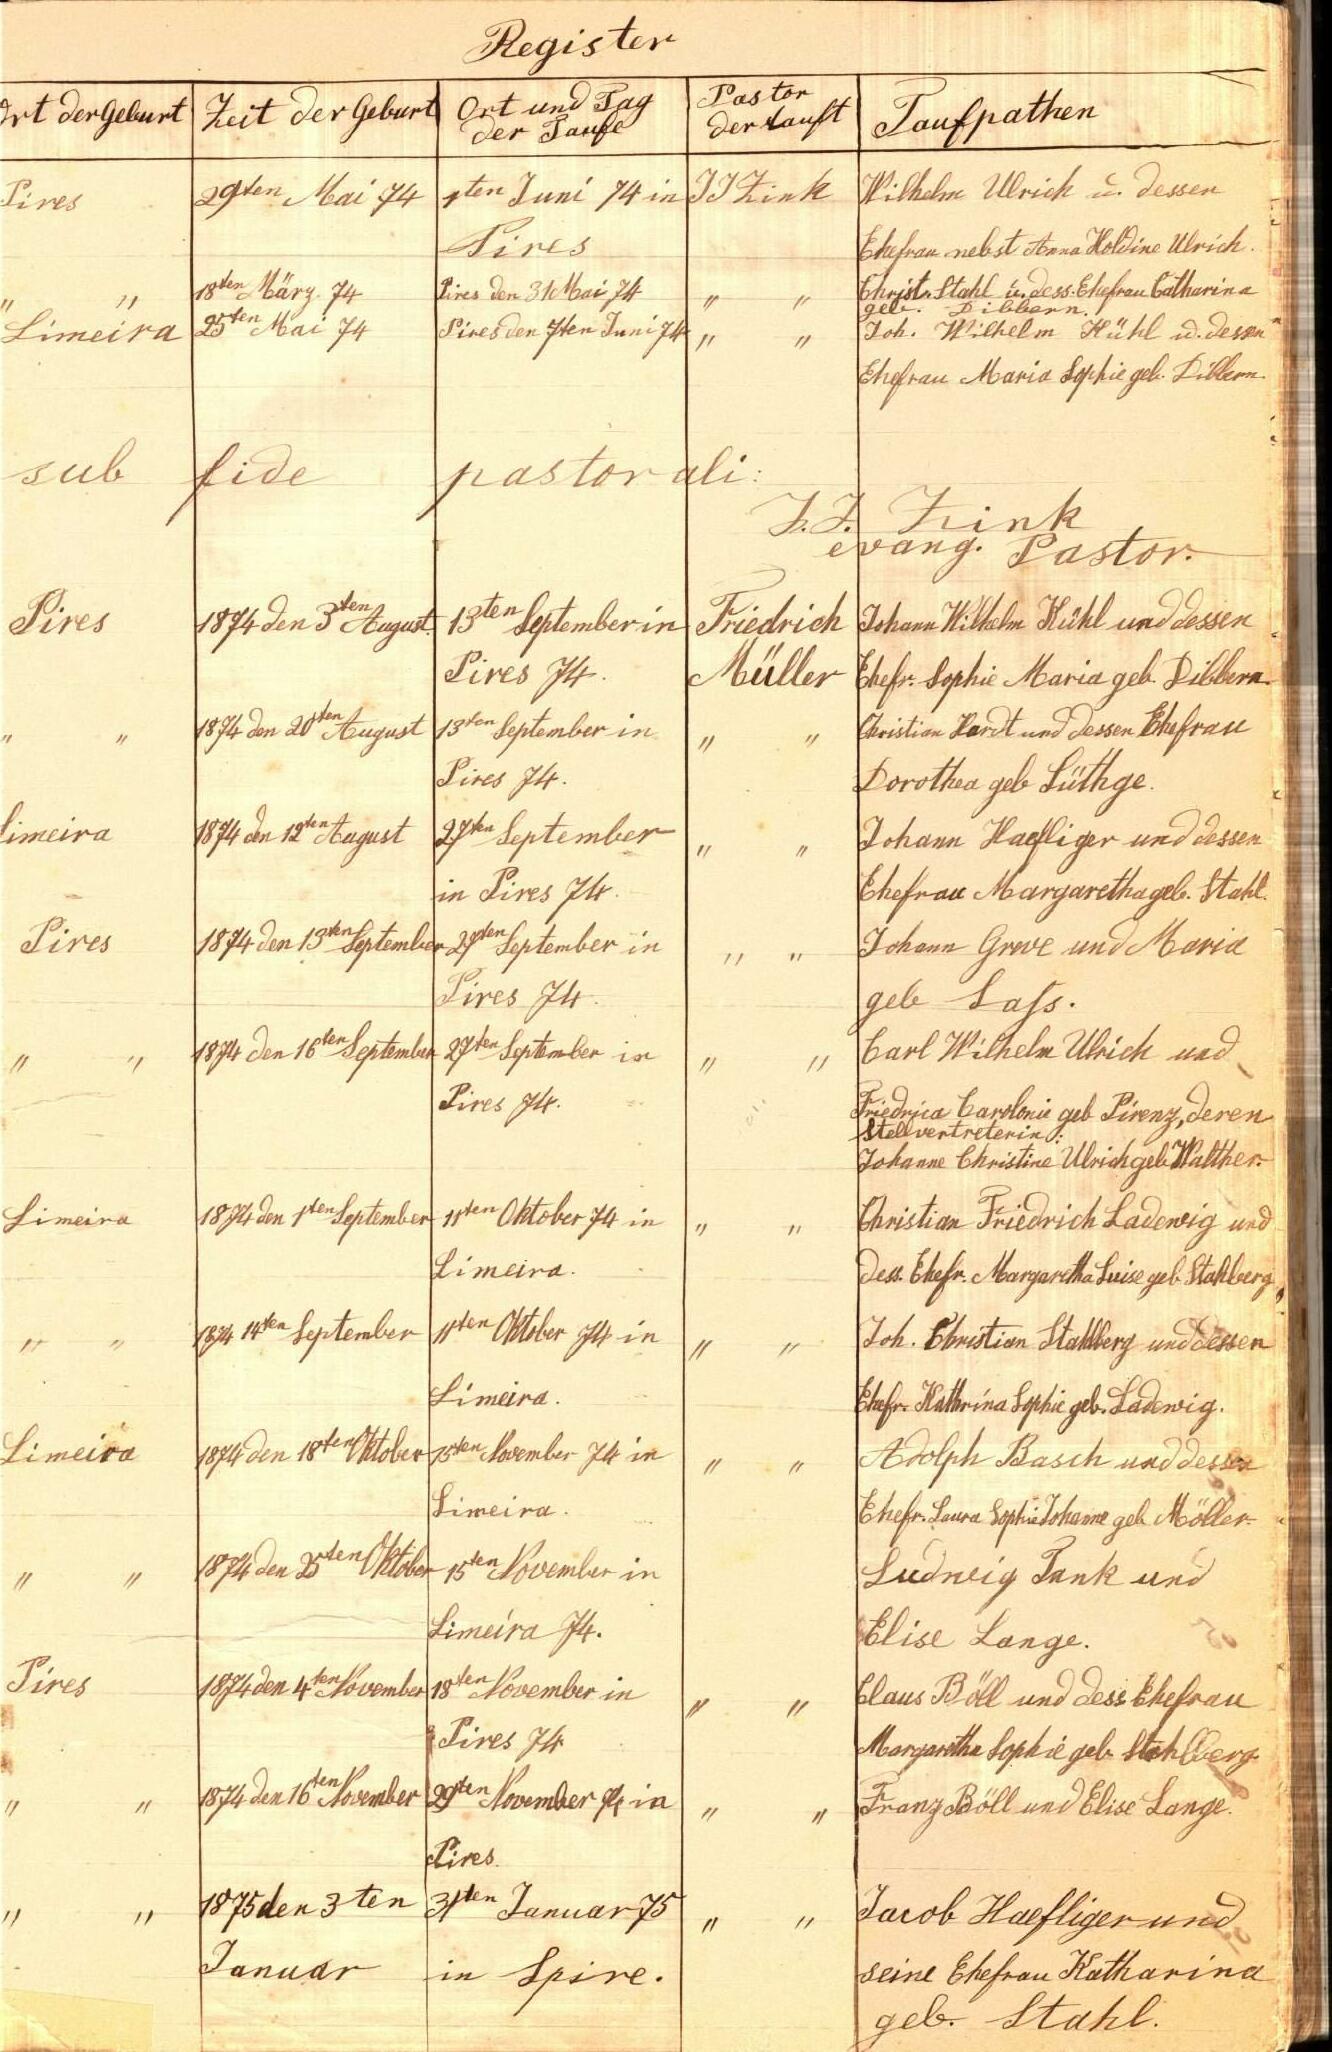 Register
Ort der Geburt Zeit der Geburt Ort und Tag der Taufe Pastor der tauft Taufpathen
Pires 29ten Mai 74 1ten Juni 74 in JJ Zink Wilhelm Ulrich u. dessen
Pires Ehefrau nebst Anna Holdine Ulrich.
" " 18ten März 74 Pires den 31 Mai 74 " " Christ. Stahl u. dess. Ehefrau Catharina
geb. Dibbern.
Limeira 25ten Mai 74 Pires den 7ten Juni 74 " " Joh. Wilhelm Kühl u. dessen
Ehefrau Maria Sophie geb. Dibbern.
sub fide pastorali:
J. J. Zink
evang. Pastor.
Pires 1874 den 3ten August. 13ten September in Friedrich Johann Wilhelm Kühl und dessen
Pires 74. Müller Ehefr. Sophie Maria geb. Dibbern.
" " 1874 den 20ten August 13ten September in " " Christian Hardt und dessen Ehefrau
Pires 74. Dorothea geb Lüthge.
Limeira 1874 den 12ten August 27ten September " " Johann Haefliger und dessen
in Pires 74. Ehefrau Margaretha geb. Stahl.
Pires 1874 den 13ten September 27ten September in " " Johann Greve und Maria
Pires 74. geb Lass.
" " 1874 den 16ten September 27ten September in " " Carl Wilhelm Ulrich und
Pires 74. Friedrica Carolonie geb Pirenz, deren
Stellvertreterin:
Johanne Christine Ulrich geb Walther.
Limeira 1874 den 1ten September 11ten Oktober 74 in " " Christian Friedrich Ladewig und
Limeira. dess. Ehefr. Margaretha Luise geb Stahlberg
" " 1874 14ten September 11ten Oktober 74 in " " Joh. Christian Stahlberg und dessen
Limeira. Ehefr. Kathrina Sophie geb. Ladewig.
Limeira 1874 den 18ten Oktober 15ten November 74 in " " Adolph Basch und dessen
Limeira. Ehefr. Laura Sophie Johanne geb Möller.
" " 1874 den 25ten Oktober 15ten November in Ludwig Tank und
Limeira 74. Elise Lange.
Pires 1874 den 4ten November 18ten November in " " Claus Böll und dess Ehefrau
Pires 74 Margaretha Sophie geb Stahlberg
" " 1874 den 16ten November 29ten November 74 in " " Franz Böll und Elise Lange.
Pires.
" " 1875 den 3ten 31ten Januar 75 " " Jacob Haefliger und
Januar in Spire. seine Ehefrau Katharina
geb. Stahl.